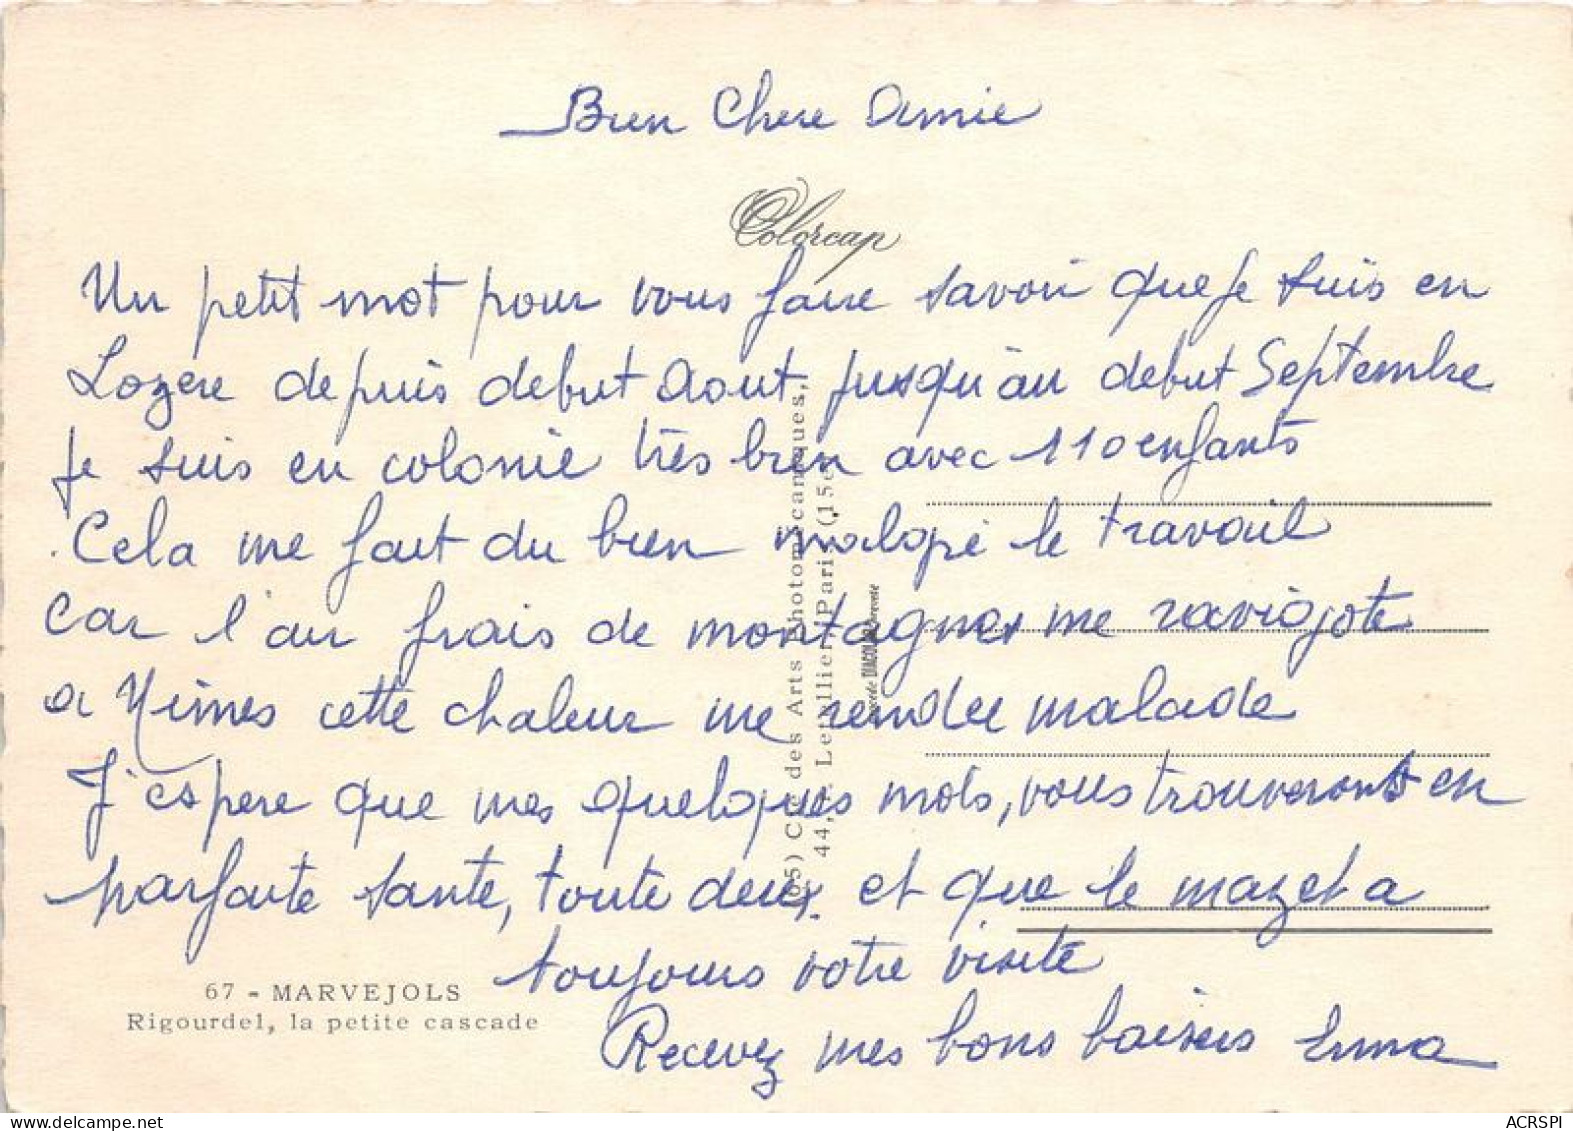 Bien Chere Amie
Colorcap
Un petit mot pour vous faire savoir que je suis en
Lozere depuis debut Aout jusqu'au debut Septembre
je suis en colonie très bien avec 110 enfants
Cela me fait du bien malgré le travail
car l'air frais de montagnes me ravigote
a Nimes cette chaleur me rendee malade
J'espere que mes quelques mots, vous trouveront en
parfaite sante, toute deux. et que le mazet a
toujours votre visite
Recevez mes bons baisers Erma
67 - MARVEJOLS
Rigourdel, la petite cascade
des Arts Photomécaniques,
44, Letellier, Paris (15e
DIACOLOR
delcampe.net
ACRSPI